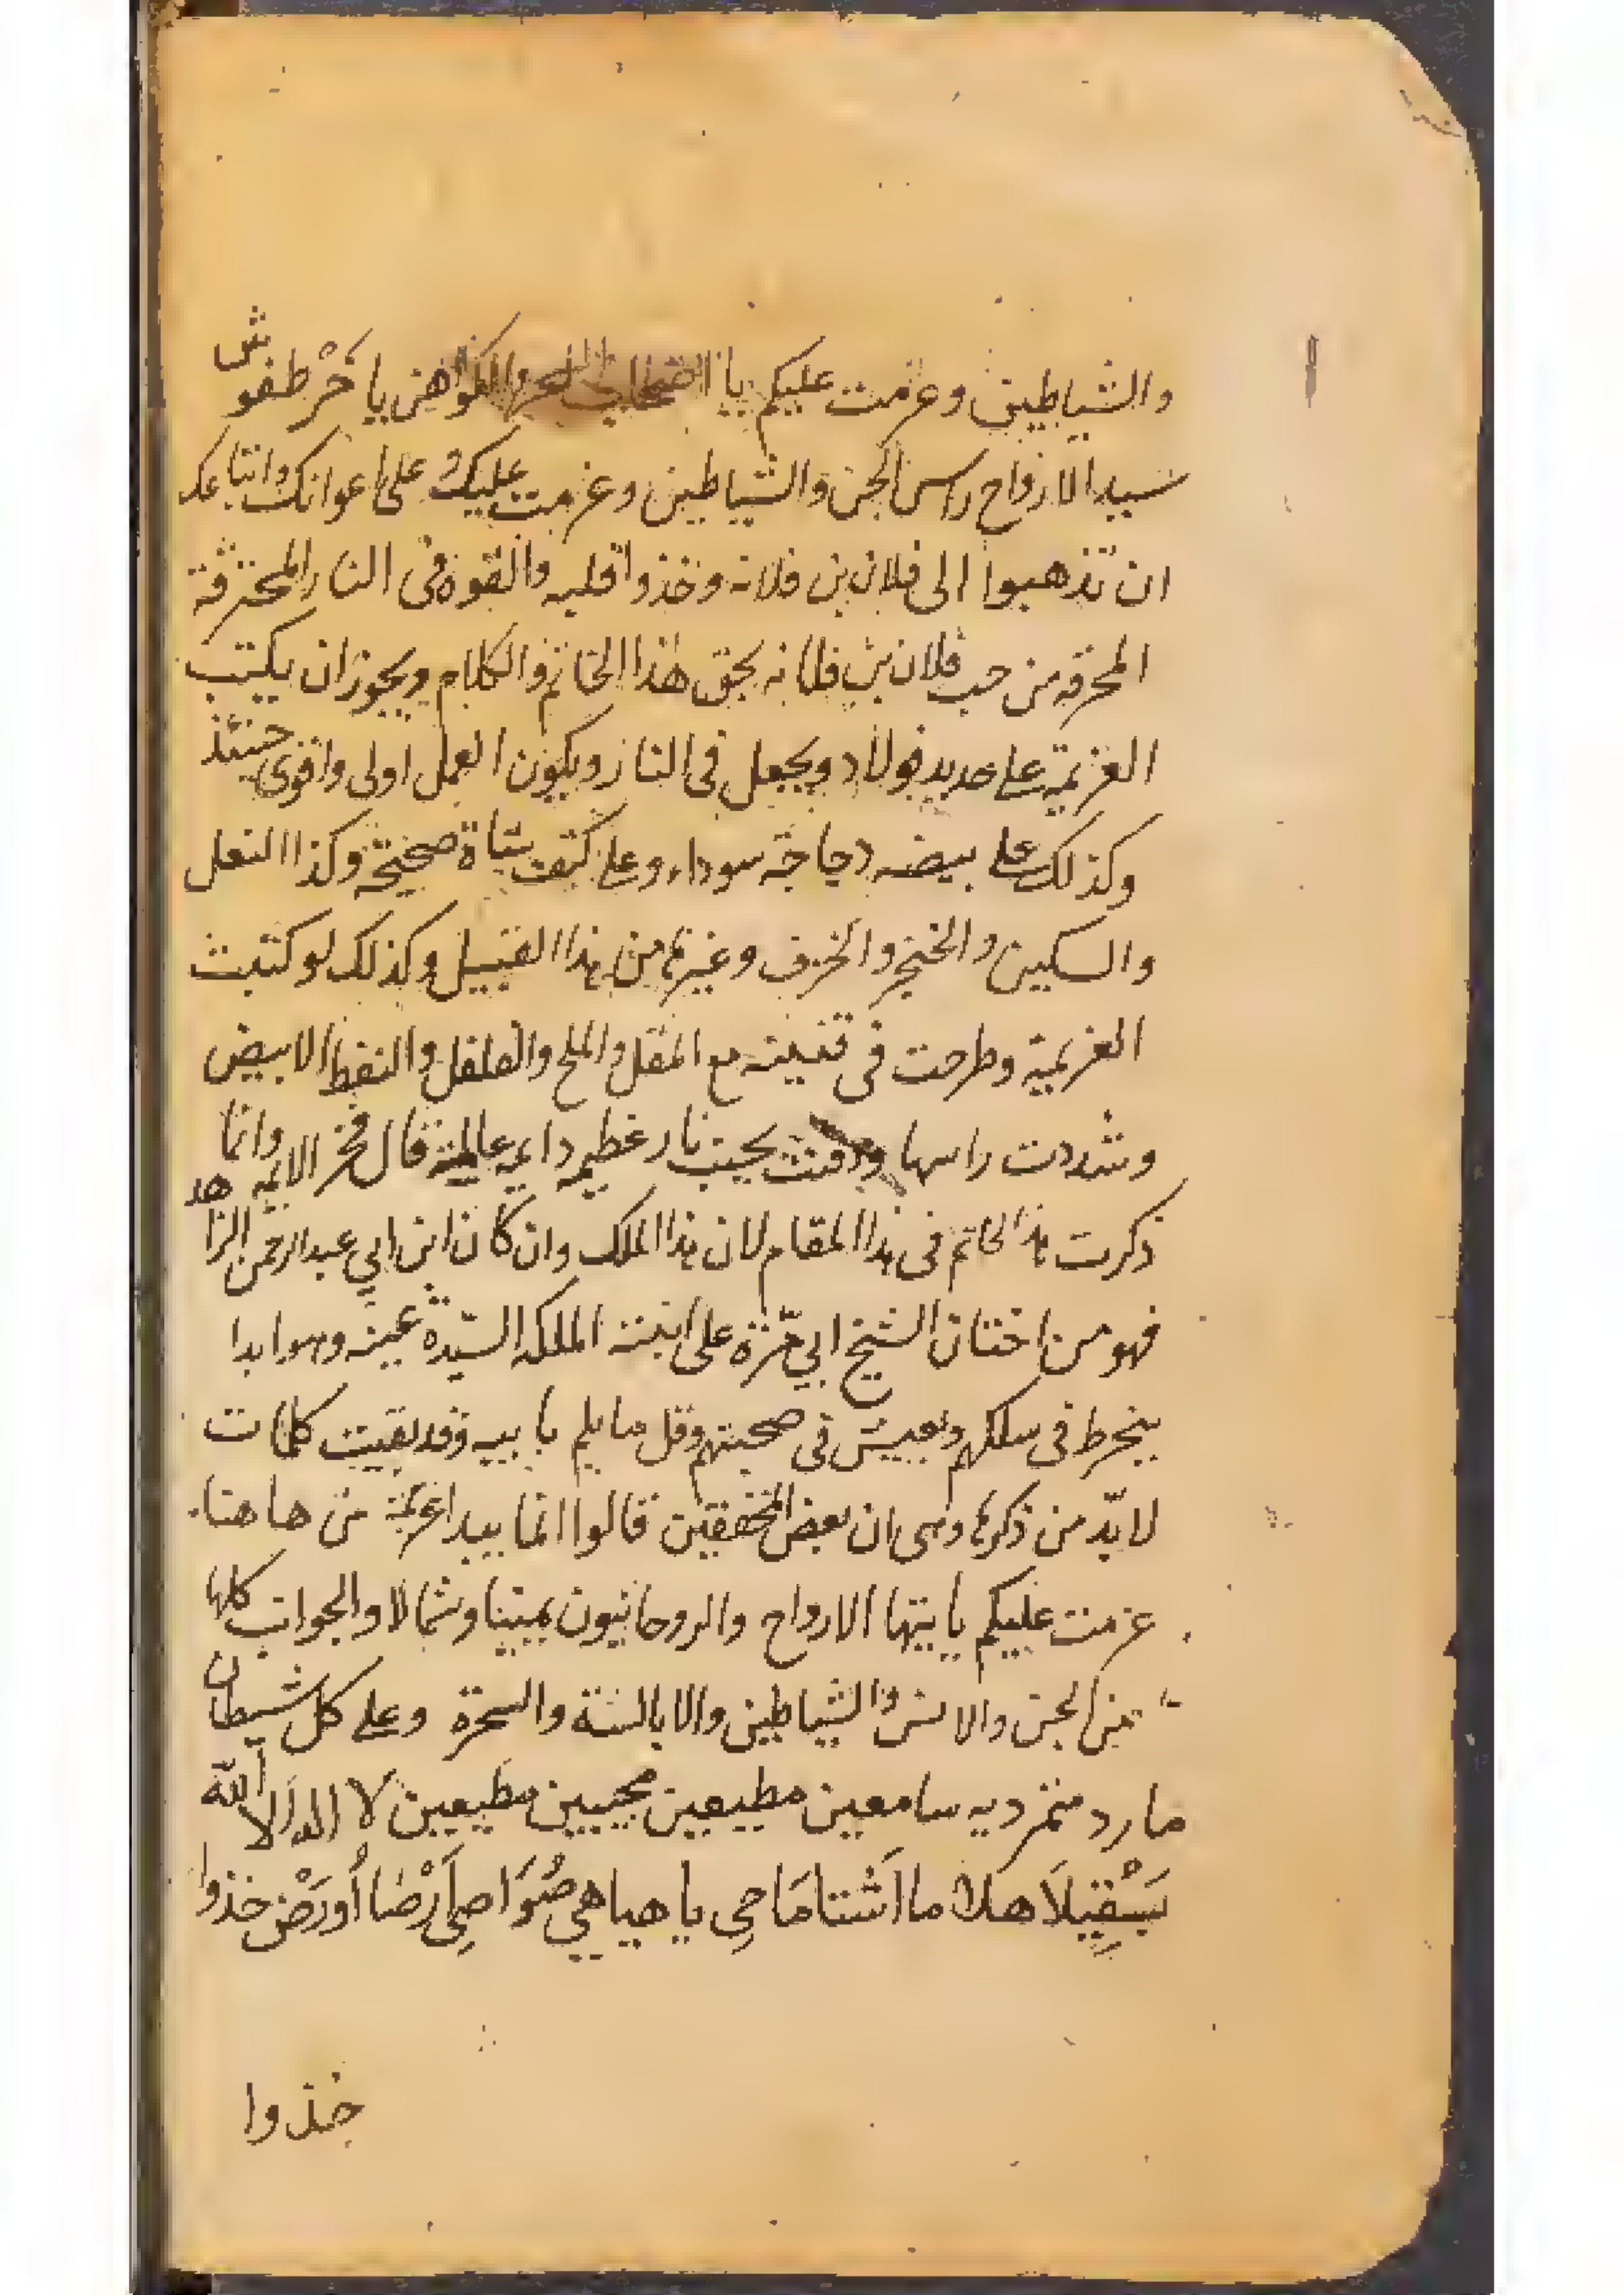 والشياطين وعزمت عليكم يا اصحاب الكواهن يا خَرْطفوش
سيد الارواح راس الجن والشياطين وعزمت عليك وعلى اعوانك واتباعك
ان تذهبوا الى فلان بن فلانه وخذوا قلبه والقوه فى النار المحترقة
المحرقه من حب فلان بن فلانه بحق هذا الخاتم والكلام ويجوز ان يكتب
العزيمة على حديد فولاد ويجعل فى النار ويكون العمل اولى واقوى حينئذ
وكذلك على بيضه دجاجة سوداء وعلى كتف شاة صحيحة وكذا النعل
والسكين والخنجر والخزف وغيرها من هذا القبيل وكذلك لو كتبت
العزيمة وطرحت فى قنينه مع المقل والملح والفلفل والنفط الابيض
وشددت راسها ودفنت بجنب نار عظيمه دايمه قال فخر الايمه وانما
ذكرت هذا الخاتم فى هذا المقام لان هذا الملك وان كان ابن ابي عبدالرحمن الزاهد
فهو من اختان الشيخ ابي مرّة على ابنته الملكه السيّدة عينه وهو ابدا
ينخرط فى سلكهم ويعيش فى صحبتهم وقل ما يلم بابيه وقد بقيت كلمات
لا بدّ من ذكرها وهى ان بعض المحققين قالوا انما يبدا عزيمة من هاهنا
عزمت عليكم يا ايتها الارواح والروحانيون يمينا وشمالا والجوانب كلها
من الجن والانس والشياطين والابالسة والسحرة وعلى كل شيطان
مارد متمرديه سامعين مطيعين مجيبين مطيعين لا اله الا الله
بَسْقِيلَا هلا ما اَشتا مَاحِي يا هيا هي صُوَاصِلى اَرْضا اُورَضْ خذوا
خذوا